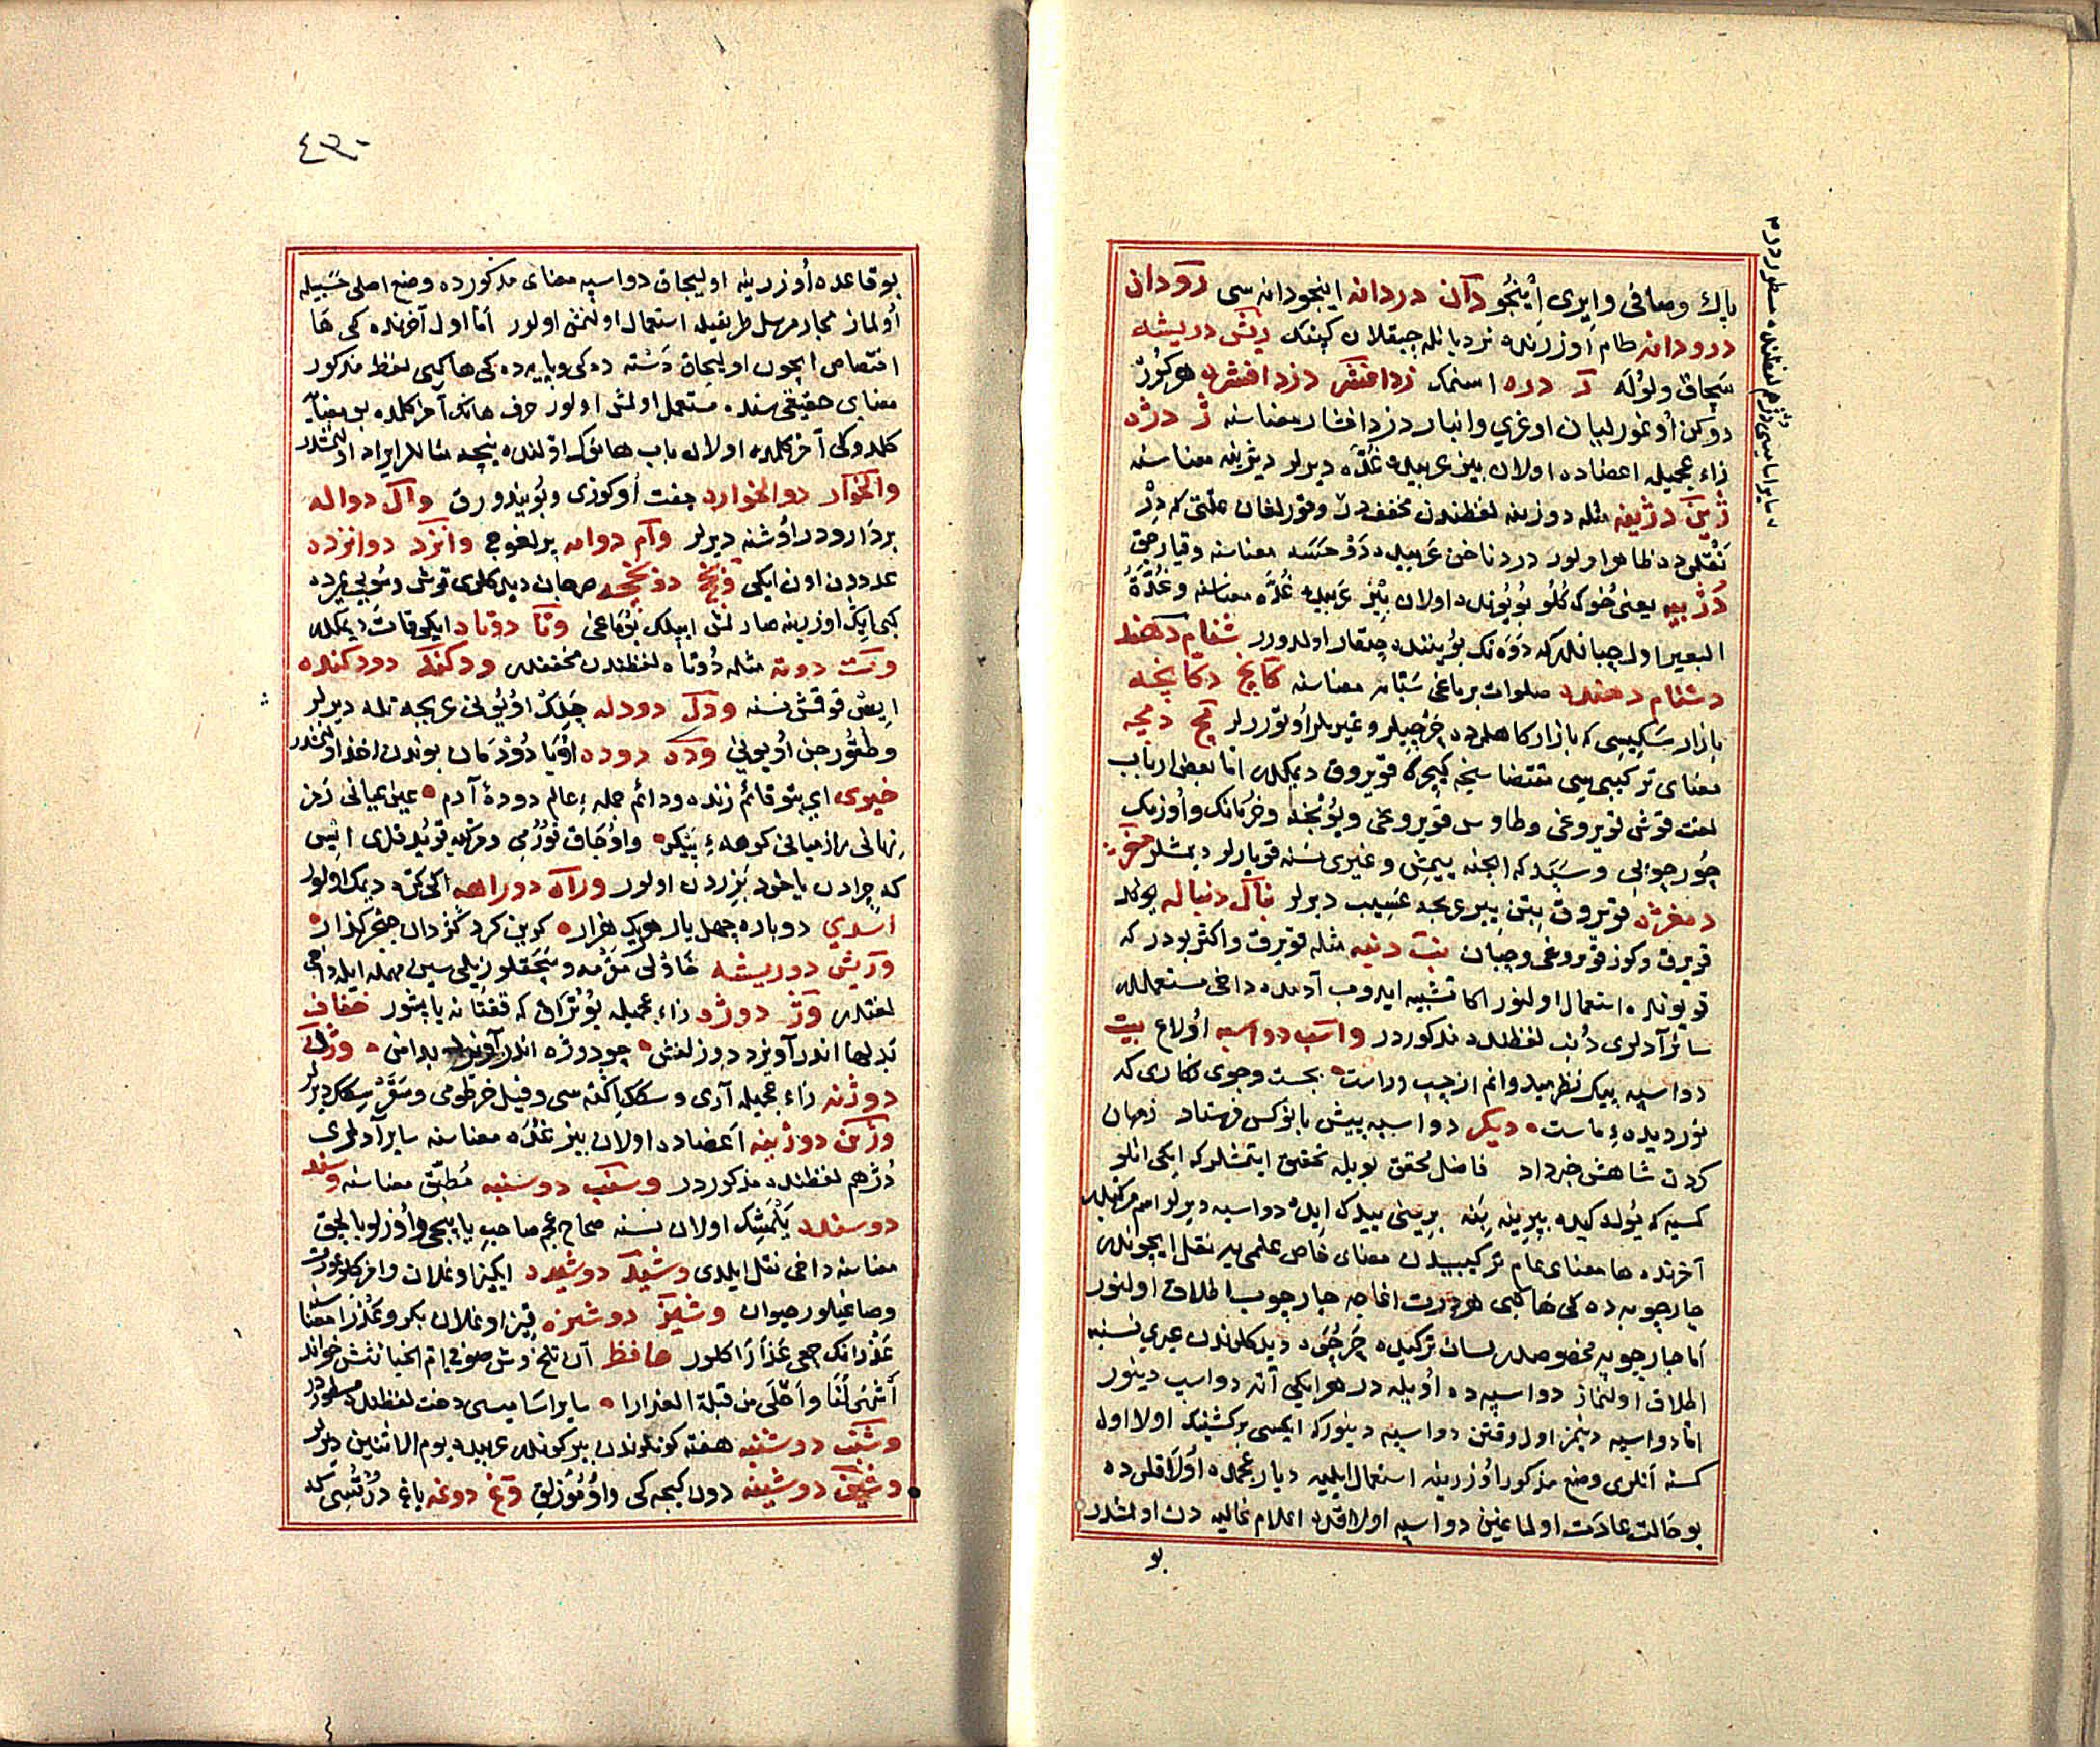 پاك وصافی وایری اینجو دآن دردانه اینجودانه سی رودان
درودانه طام اوزرنده نردبانله چیقلان کپنك ریش دریشه
سچاق ولوله ر دره اسنمك زدافشر دزدافشره هر کوز
دوکن اوغورلیان اوغری وانبار دزدافشار معناسنه ژ دژه
زاء عجمیله اعضاده اولان بیز عربیده غده دیرلر دیژینه معناسنه
ژین دژینه مثله دوژینه لفظندن مخففدر وقورلغان علتی که دژ
نقلی دن ظاهر اولور دردناخن عربیده
دژبیه یعنی خوك کلو بوینده اولان بیز عربیده غده معناسنه وغدة
البعیر اول چبانلرکه دوه نك بویننده چیقار اولدورر شنام دهند
دشنام دهنده صلوات برماغی سبابه معناسنه کانج دکانچه
بازار سکیسی که بازارکاهلرده خرجیلر وغیریلر اوتوررلر مج دمجه
معنای ترکیبیسی مقتضاسنجه کیچرك قویروق دیمکدر اما بعض ارباب
لغت قوش قویروغی وطاوس قویروغی
وسبد که انجنه ییمش وغیری نسنه قویارلر دیمشلر مغز
دمغزه قویروق بتن ییری عسیب دیرلر نبال دنباله
قویرق وکوز قویروغی وچبان نب دنبه مثله قویرق واکثر بودر که
قویونده استعمال اولنور اکا تشبیه ایدوب آدمده داخی مستعملدر
سائر آدلری دنب لفظنده مذکوردر واسب دواسبه اولاغ بیت
دواسبه پیك نظر میدوانم از چپ وراست بجست وجوی نکاری که
نور دیده ماست دیکر دواسبه پیش بانوکس فرستاد زمهان
کردن شاهش خبرداد فاضل محقق بویله تحقیق ایتمشلر که ایکی اتلو
کمسیه که یولده کیده بیرینه بنه برینی ییدك ایده دواسبه دیرلر اسم مرکبدر
آخرنده ها معنای عام ترکیبیدن معنای خاص علمی یه نقل ایچوندر
چارچوبه ده کی ها کبی هر درت اغاجه چارچوب اطلاق اولنور
اما چارچوبه مخصوصدر لسان ترکیده چرچوه دیدکلرندن غیری نسنیه
اطلاق اولنماز دواسبه ده اویله در هر ایکی آته دواسب دینور
اما دواسبه دینمز اول وقتن دواسبه دینور که ایکسی بر کشینك اولا اول
کسنه آنلری وضع مذکور اوزرینه استعمال ایلیه دیار عجمده اولاقلرده
بو حالت عادت اولماغین دواسبه اولاقدن اعلام غالبه دن اولمشدر
بو
سایر اسامیسی دژم لفظنده مسطوردر م
٤٣٠
بو قاعده اوزرینه اولیجاق دواسبه معنای مذکورده وضع اصلی حسبیله
اولماز مجاز مرسل طریقیله استعمال اولنمش اولور اما اول آخرنده کی ها
اختصاص ایچون اولیجاق دسته ده کی وپایه ده کی ها کبی لفظ مذکور
معنای حقیقی سنده مستعمل اولمش اولور حرف هانك آخر کلمده بو معنایه
کلدوکی آخر کلمده اولان باب هانوك اولنده نیچه مثاللر ایراد اولنمشدر
والخوار دوالخواره جفت اوکوزی وبویندورق وال دواله
بر دارودر اوشنه دیرلر وام دوامه یرلغوجی وانزد دوانزده
عدددن اون ایکی
کبی ایك اوزرینه صارلمش ایپلك یوماغی وتا دوتاه ایکی قات دیمکدر
وت دوته مثله دوتاه لفظندن مخففدر ودکند دودکنده
ایش قوقمش نسنه ودل دودله چلك اویونی عربجه قله دیرلر
وطقورجن اویونی وده دوده اویا دودمان بوندن اخذ اولنمشدر
خیری ای بتو قائم زنده ودائم جمله عالم دوده آدم عین عیانی رمز
نهانی راز میانی کوهر پیکر واوجاق قورمی ومرکب قویدقلری ایس
که چرادن یاخود بزردن اولور وراه دوراهه ایکی کره دیمك اولور
اسدی دوباره چهل بار هر یك هزار کزین کرد کردان خنجر کذار
وریش دوریشه خاولی مقرمه وسچقلو زیلی سین مهمله ایله داخی
لغتدر وژ دوژه زاء عجمیله بوتراق که قفتانه یاپشور خفاف
بدلها اندر آویزد دوزلفش چو دوژه اندر آویزد بدامن وژن
دوژنه زاء عجمیله آری وسکك اکنه سی وفیل خرطومی وسفرسکك دیرلر
وژین دوژینه اعضاده اولان بیز غده معناسنه سایر آدلری
دژهم لفظنده مذکوردر وسنب دوسنبه مطبق معناسنه وسند
دوسنده یلمشك اولان نسنه صحاح عجم صاحبی یاپیجی واوزلو بالچق
معناسنه داخی نقل ایلدی وشید دوشیده ایکیز اوغلان وامزکلو عورت
وصاغیلور حیوان وشیز دوشیزه قیز اوغلان بکر وعذرا معناسنه
عذرانك جمعی عذارا کلور حافظ آن تلخ وش صوفی ام الخبائثش خواند
أشهى لنا وأحلى من قبلة العذارا سایر اسامیسی دخت لفظنده مسطوردر
وشنب دوشنبه هفته کونلرندن بیر کوندر عربیده یوم الاثنین دیرلر
وشین دوشینه دون کیجه کی واوموزلق وغ دوغه یاغ درتسی که